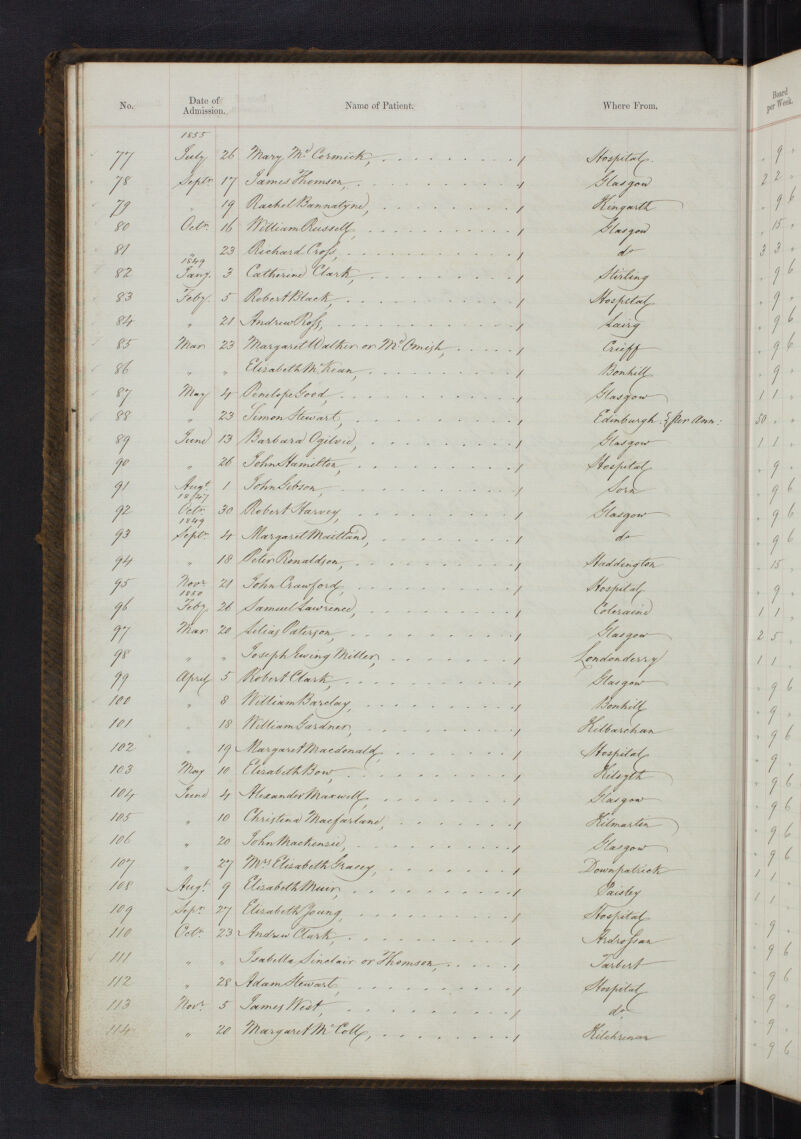 No. Date of Admission. Name of Patient. Where From. Board per Week.
1855
77 July 26 Mary McCormick, Hospital. " 9 "
78 Septr 17 James Thomson, Glasgow 2 2 "
79 19 Rachel Bannatyne, Kingarth " 9 6
80 Octr 16 William Russell, Glasgow " 15 "
81 " 23 Richard Cross, do 3 3 "
1849
82 Jany. 3 Catherine Clark, Stirling " 9 6
83 Feby 5 Robert Black, Hospital " 9 "
84 " 21 Andrew Ross, Lairg " 9 6
85 Mar 23 Margaret Walker or McOmish, Crieff " 9 6
86 " " Elizabeth McKean, Bonhill " 9 "
87 May 4 Penelope Good, Glasgow 1 1 "
88 " 23 Simon Stewart, Edinburgh. £ per Ann: 50 " "
89 June 13 Barbara Ogilvie, Glasgow 1 1 "
90 " 26 John Hamilton, Hospital " 9 "
91 Augt 1 John Gibson, Sorn " 9 6
1847
92 Octr 30 Robert Harvey, Glasgow " 9 6
1849
93 Septr 4 Margaret Maitland, do " 9 6
94 " 18 Peter Ronaldson, Haddington " 15 "
95 Novr 21 John Crawford, Hospital " 9 "
1850
96 Feby 26 Samuel Lawrence, Coleraine 1 1 "
97 Mar 20 Lilias Paterson, Glasgow 2 5 "
98 " " Joseph Ewing Miller, Londonderry 1 1 "
99 April 5 Robert Clark, Glasgow " 9 6
100 " 8 William Barclay, Bonhill " 9 "
101 " 18 William Gardner, Kilbarchan " 9 6
102 " 19 Margaret Macdonald Hospital " 9 "
103 May 10 Elizabeth Bow, Kilsyth " 9 6
104 June 4 Alexander Maxwell, Glasgow " 9 6
105 " 10 Christina Macfarlane, Kilmartin " 9 6
106 " 20 John Mackenzie, Glasgow " 9 6
107 " 27 Mrs Elizabeth Gracey, Downpatrick 1 1 "
108 Augt. 9 Elizabeth Muir, Paisley 1 1 "
109 Sepr. 27 Elizabeth Young Hospital " 9 "
110 Octr 23 Andrew Clark, Ardrossan " 9 6
111 " " Isabella Sinclair or Thomson, Tarbert " 9 6
112 " 28 Adam Stewart, Hospital " 9 "
113 Novr. 5 James West, do. " 9 "
114 " 20 Margaret McColl, Kilchrenan " 9 6